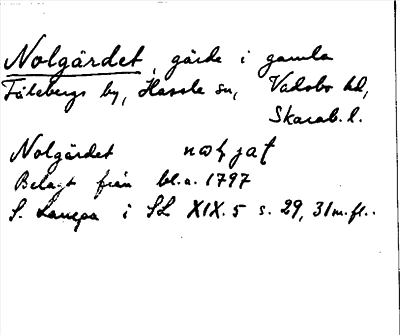 Nolgärdet, gärde i gamla
Fäleberg by, Hassle sn, Vadsbo hd,
Skarab. l.
Nolgärdet
Belagt från bl.a. 1797
S. Lampa i SL XIX. 5 s. 29, 31 m.fl..